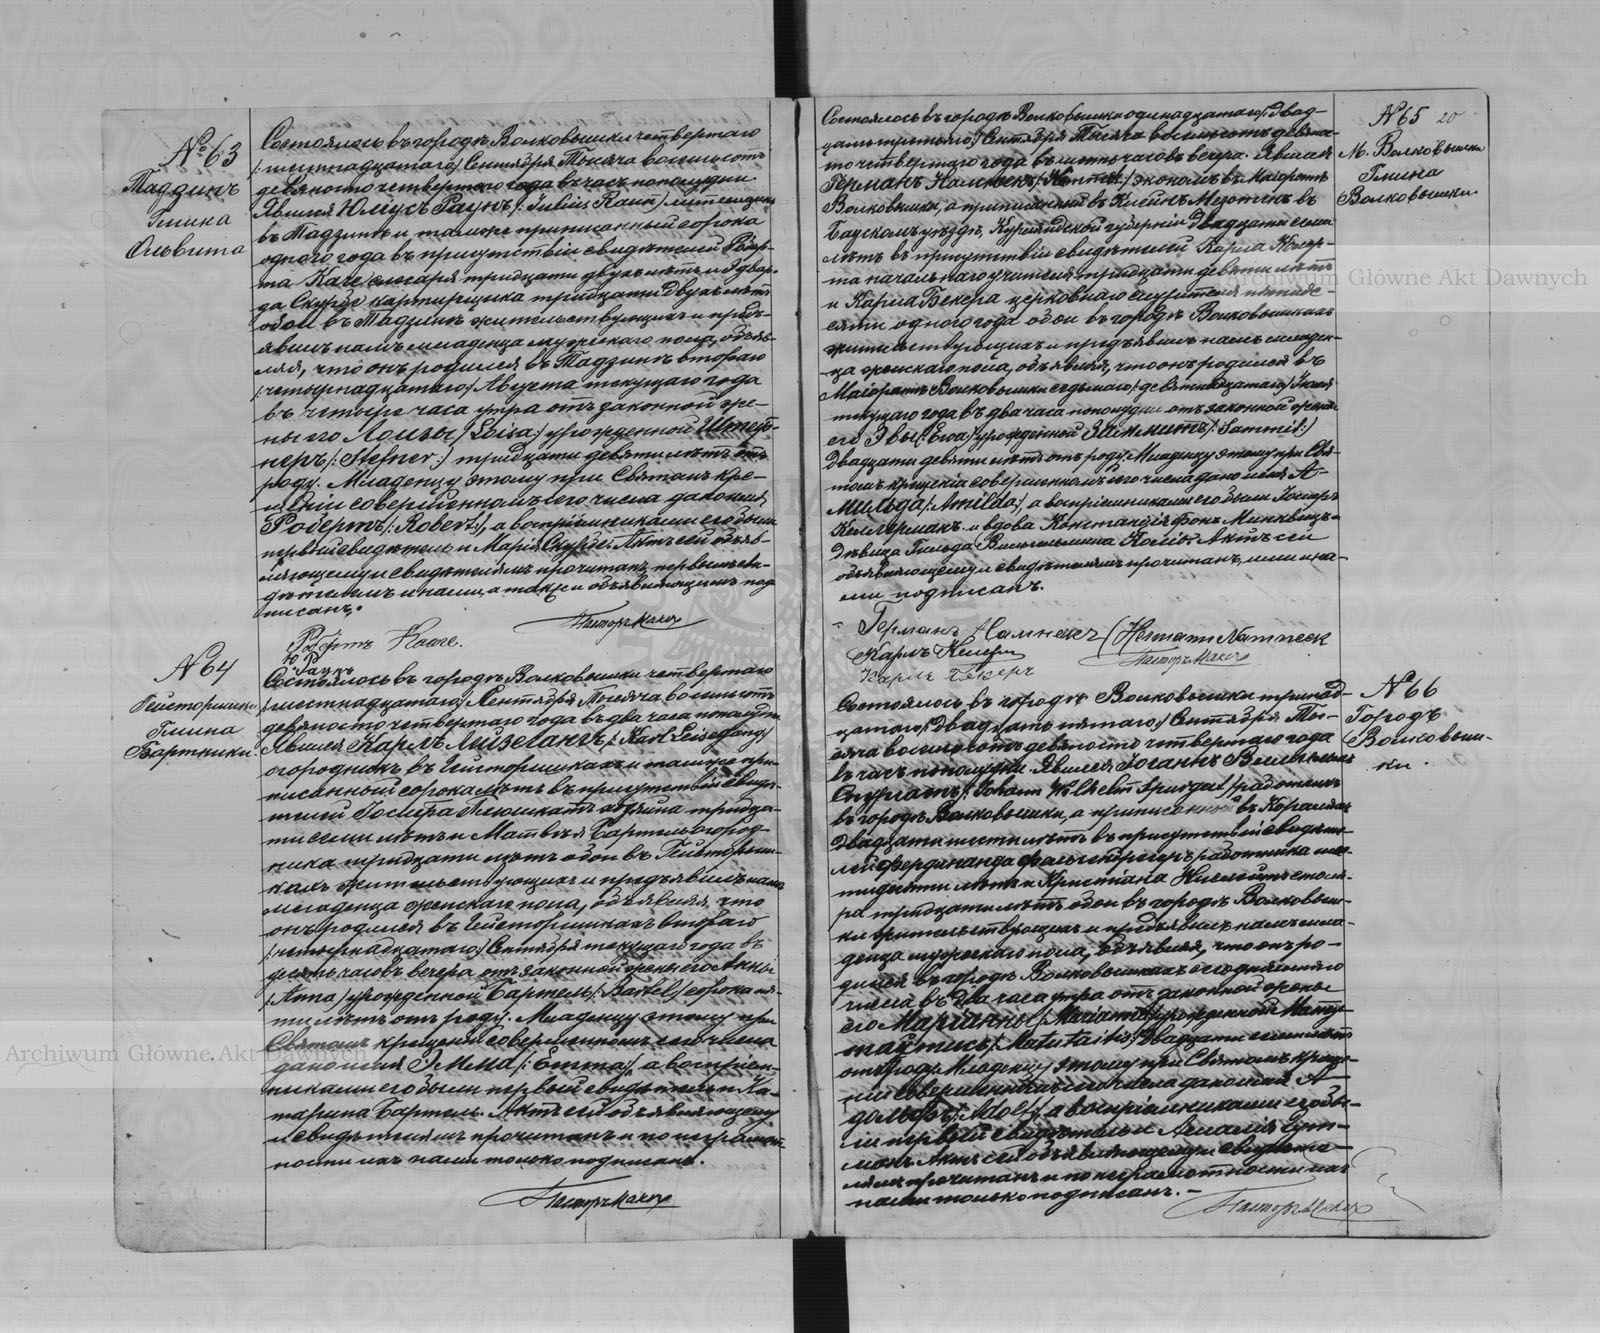 № 63
Тадзинъ
Гмина
Ольвита
Состоялось въ городѣ Волковышки четвертаго
/:шестнадцатаго:/ Сентября Тысяча восемьсотъ
девяносто четвертаго года въ часъ пополудни.
Явился Юліусъ Раунъ /:Julius Raun:/
въ Тадзинѣ и тамже приписанный сорока
одного года въ присутствіи свидѣтелей Робер-
та Каге слесаря тридцати двухъ лѣтъ и Эдвар-
да Скурде тридцати двухъ лѣтъ
обои въ Тадзинѣ жительствующихъ и предъ-
явилъ намъ младенца мужескаго пола, объяв-
ляя, что онъ родился въ Тадзинѣ втораго
/:четырнадцатаго:/ Августа текущаго года
въ четыре часа утра отъ законной же-
ны его Лоизы /:Loisa:/ урожденной Штеф-
неръ /:Stefner:/ тридцати девяти лѣтъ отъ
роду. Младенцу этому при Святомъ Кре-
щеніи совершенномъ сего числа дано имя
Робертъ /:Robert:/, а воспріемниками его были
первый свидѣтель и Марія Скурде. Актъ сей объяв-
ляющему и свидѣтелямъ прочитанъ, первымъ сви-
дѣтелемъ и нами, а также и объявляющимъ под-
писанъ.
Пасторъ
Робертъ Kaage.
Ю Раунъ
№ 64
Гмина
Бартники
Состоялось въ городѣ Волковышки четвертаго
/шестнадцатаго:/ Сентября Тысяча восемьсотъ
девяносто четвертаго года въ два часа пополудни.
Явился Карлъ Лизегангъ /:Karl Leisegang:/
огородникъ въ и тамже при-
писанный сорока лѣтъ въ присутствіи свидѣ-
телей тридца-
ти семи лѣтъ и Матвѣя Бартель огород-
ника тридцати лѣтъ обои въ
кахъ жительствующихъ и предъявилъ намъ
младенца женскаго пола, объявляя, что
онъ родился въ втораго
/:четырнадцатаго:/ Сентября текущаго года въ
десять часовъ вечера отъ законной жены его Анны
/Anna/ урожденной Бартель /:Bartel:/ сорока пя-
ти лѣтъ отъ роду. Младенцу этому при
Святомъ крещеніи совершенномъ сего числа
дано имя Эмма /:Emma:/, а воспріем-
никами его были первый свидѣтель и Ка-
тарина Бартель. Актъ сей объявляющему
и свидѣтелямъ прочитанъ и по неграмот-
ности ихъ нами только подписанъ.
Пасторъ
№ 65 20
М. Волковышки
Гмина
Волковышки
Состоялось въ городѣ Волковышки одинадцатаго /:двад-
цать третьяго:/ Сентября Тысяча восемьсотъ девяно-
сто четвертаго года въ шесть часовъ вечера. Явился
Германъ экономъ въ Маіоратѣ
Волковышки, а приписанный въ въ
Баускомъ уѣздѣ, Курляндской губерніи двадцати семи
лѣтъ въ присутствіи свидѣтелей Карла Келер-
та начальнаго учителя тридцати девяти лѣтъ
и Карла Бекера церковнаго служителя пятьде-
сяти одного года обои въ городѣ Волковышкахъ
жительствующихъ и предъявилъ намъ младен-
ца женскаго пола, объявляя, что онъ родился въ
Маіоратѣ Волковышки седьмаго /:девятнадцатаго:/ Іюля
текущаго года въ два часа пополудни отъ законной жены
его Эвы /:Ewa:/ урожденной /:Sammit:/
двадцати девяти лѣтъ отъ роду. Младенцу этому при Свя-
томъ крещеніи совершенномъ сего числа дано имя А-
мильда /:Amilda:/, а воспріемниками его были
Келлерманъ и вдова Констанція фонъ Минквицъ
дѣвица Гильда Вильгельмина Актъ сей
объявляющему и свидѣтелямъ прочитанъ, ими и на-
ми подписанъ.
Германъ /Hermann
Карлъ
Карлъ Бекеръ
Пасторъ
№ 66
Городъ
Волковыш-
ки.
Состоялось въ городѣ Волковышки тринад-
цатаго /:двадцать пятаго:/ Сентября Тыс-
яча восемьсотъ девяносто четвертаго года
въ часъ пополудни. Явился Іоганъ Вильгельмъ
/:Johann Wilhelm работникъ
въ городѣ Волковышки, а приписанный въ
двадцати шести лѣтъ въ присутствіи свидѣте-
лей Фердинанда работника шес-
тидесяти лѣтъ и Кристіана столя-
ра тридцати лѣтъ обои въ городѣ Волковыш-
ки жительствующихъ и предъявилъ намъ мла-
денца мужескаго пола, объявляя, что онъ ро-
дился въ городѣ Волковышкахъ сегодняшняго
числа въ два часа утра отъ законной жены
его Маріанны /:Marianna:/ урожденной Мату-
тайтисъ /:Matutaitis:/ двадцати семи лѣтъ
отъ роду. Младенцу этому при Святомъ креще-
ніи совершенномъ сего числа дано имя А-
дольфъ /:Adolf:/, а воспріемниками его бы-
ли первый свидѣтель и Амалія Гут-
манъ. Актъ сей объявляющему и свидѣте-
лямъ прочитанъ и по неграмотности ихъ
нами только подписанъ.-
Пасторъ
Archiwum Główne Akt Dawnych
Archiwum Główne Akt Dawnych